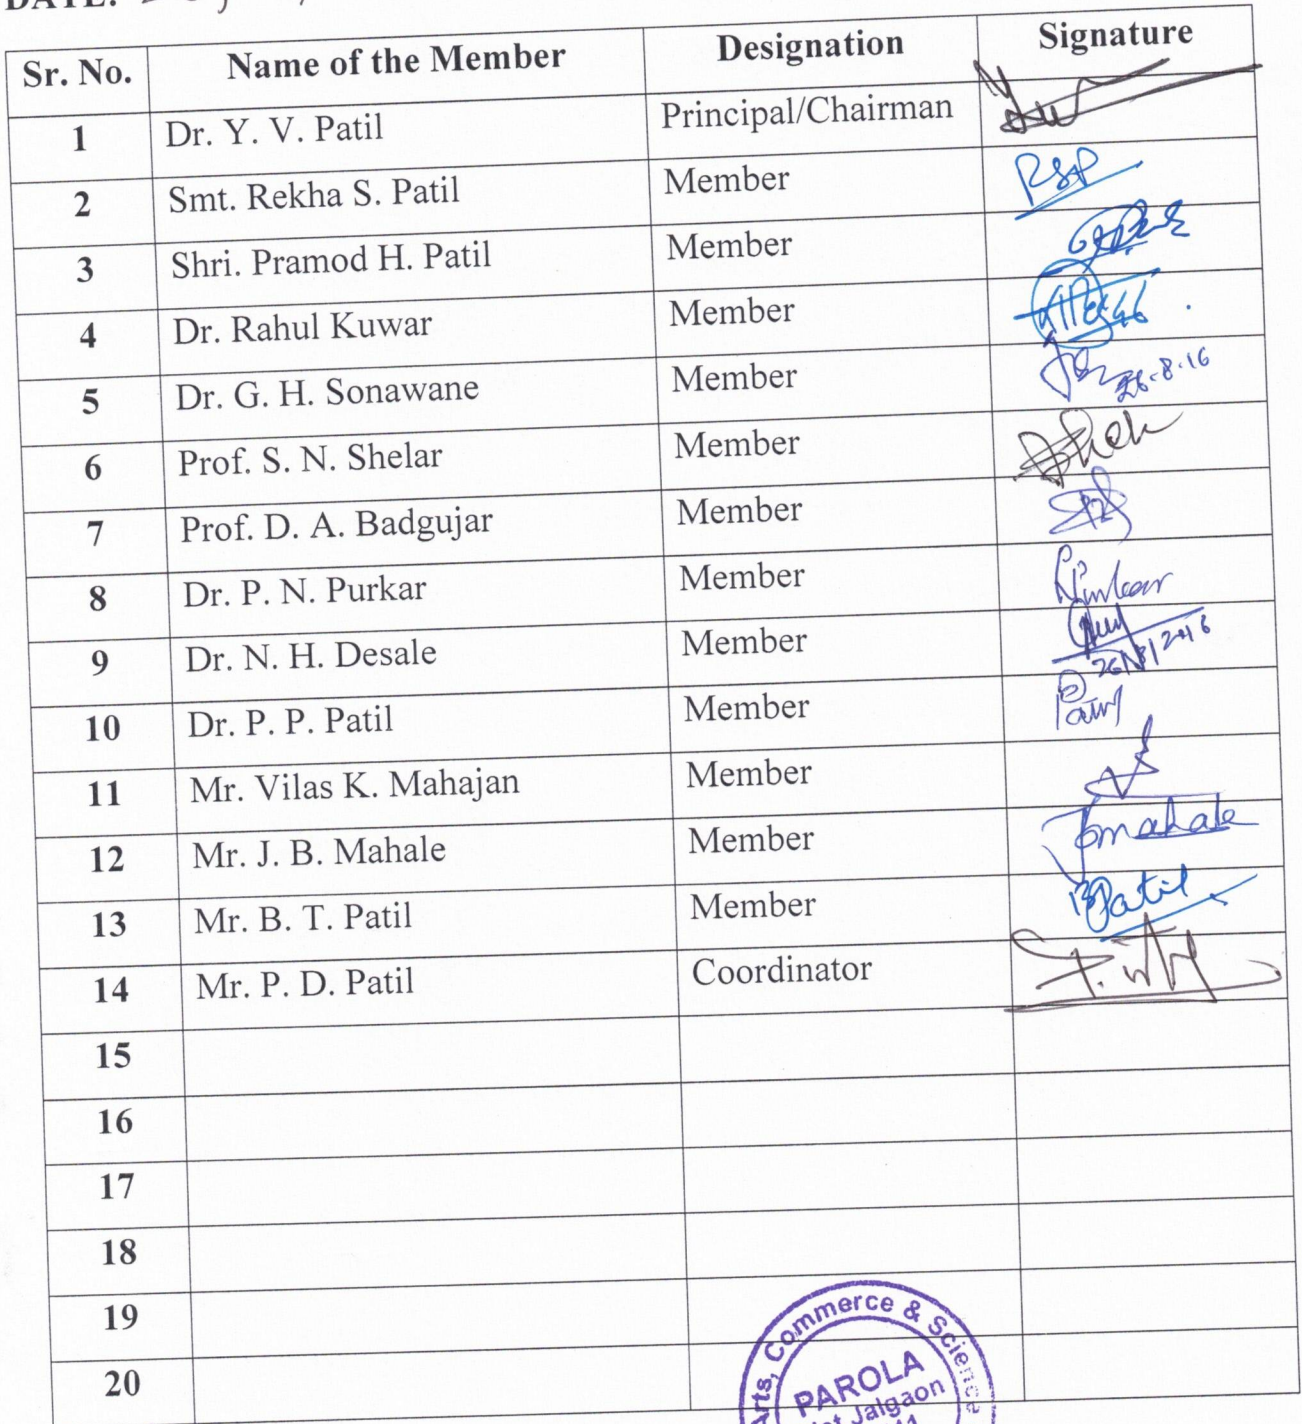 DATE:
Sr. No. Name of the Member Designation Signature
1 Dr. Y. V. Patil Principal/Chairman
2 Smt. Rekha S. Patil Member RSP
3 Shri. Pramod H. Patil Member
4 Dr. Rahul Kuwar Member
5 Dr. G. H. Sonawane Member 26.8.16
6 Prof. S. N. Shelar Member
7 Prof. D. A. Badgujar Member
8 Dr. P. N. Purkar Member
9 Dr. N. H. Desale Member
10 Dr. P. P. Patil Member
11 Mr. Vilas K. Mahajan Member
12 Mr. J. B. Mahale Member Jbmahale
13 Mr. B. T. Patil Member BPatil
14 Mr. P. D. Patil Coordinator
15
16
17
18
19
20
Arts, Commerce & Science
PAROLA
Jalgaon